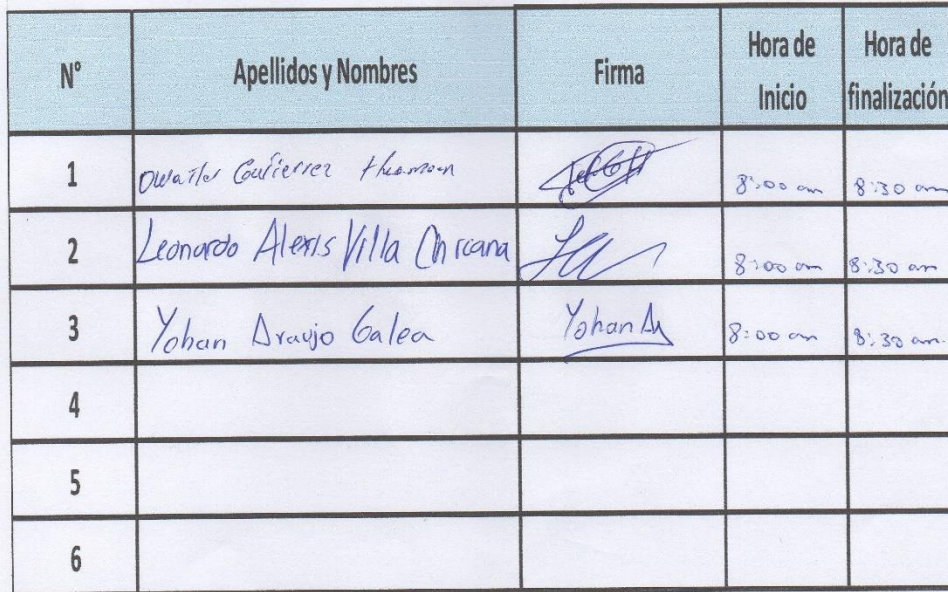 N° Apellidos y Nombres Firma Hora de Inicio Hora de finalización
1 Gutierrez 8:00 am 8:30 am
2 Leonardo Alexis Villa Chicana 8:00 am 8:30 am
3 Yohan Araujo Galea Yohan A 8:00 am 8:30 am
4
5
6